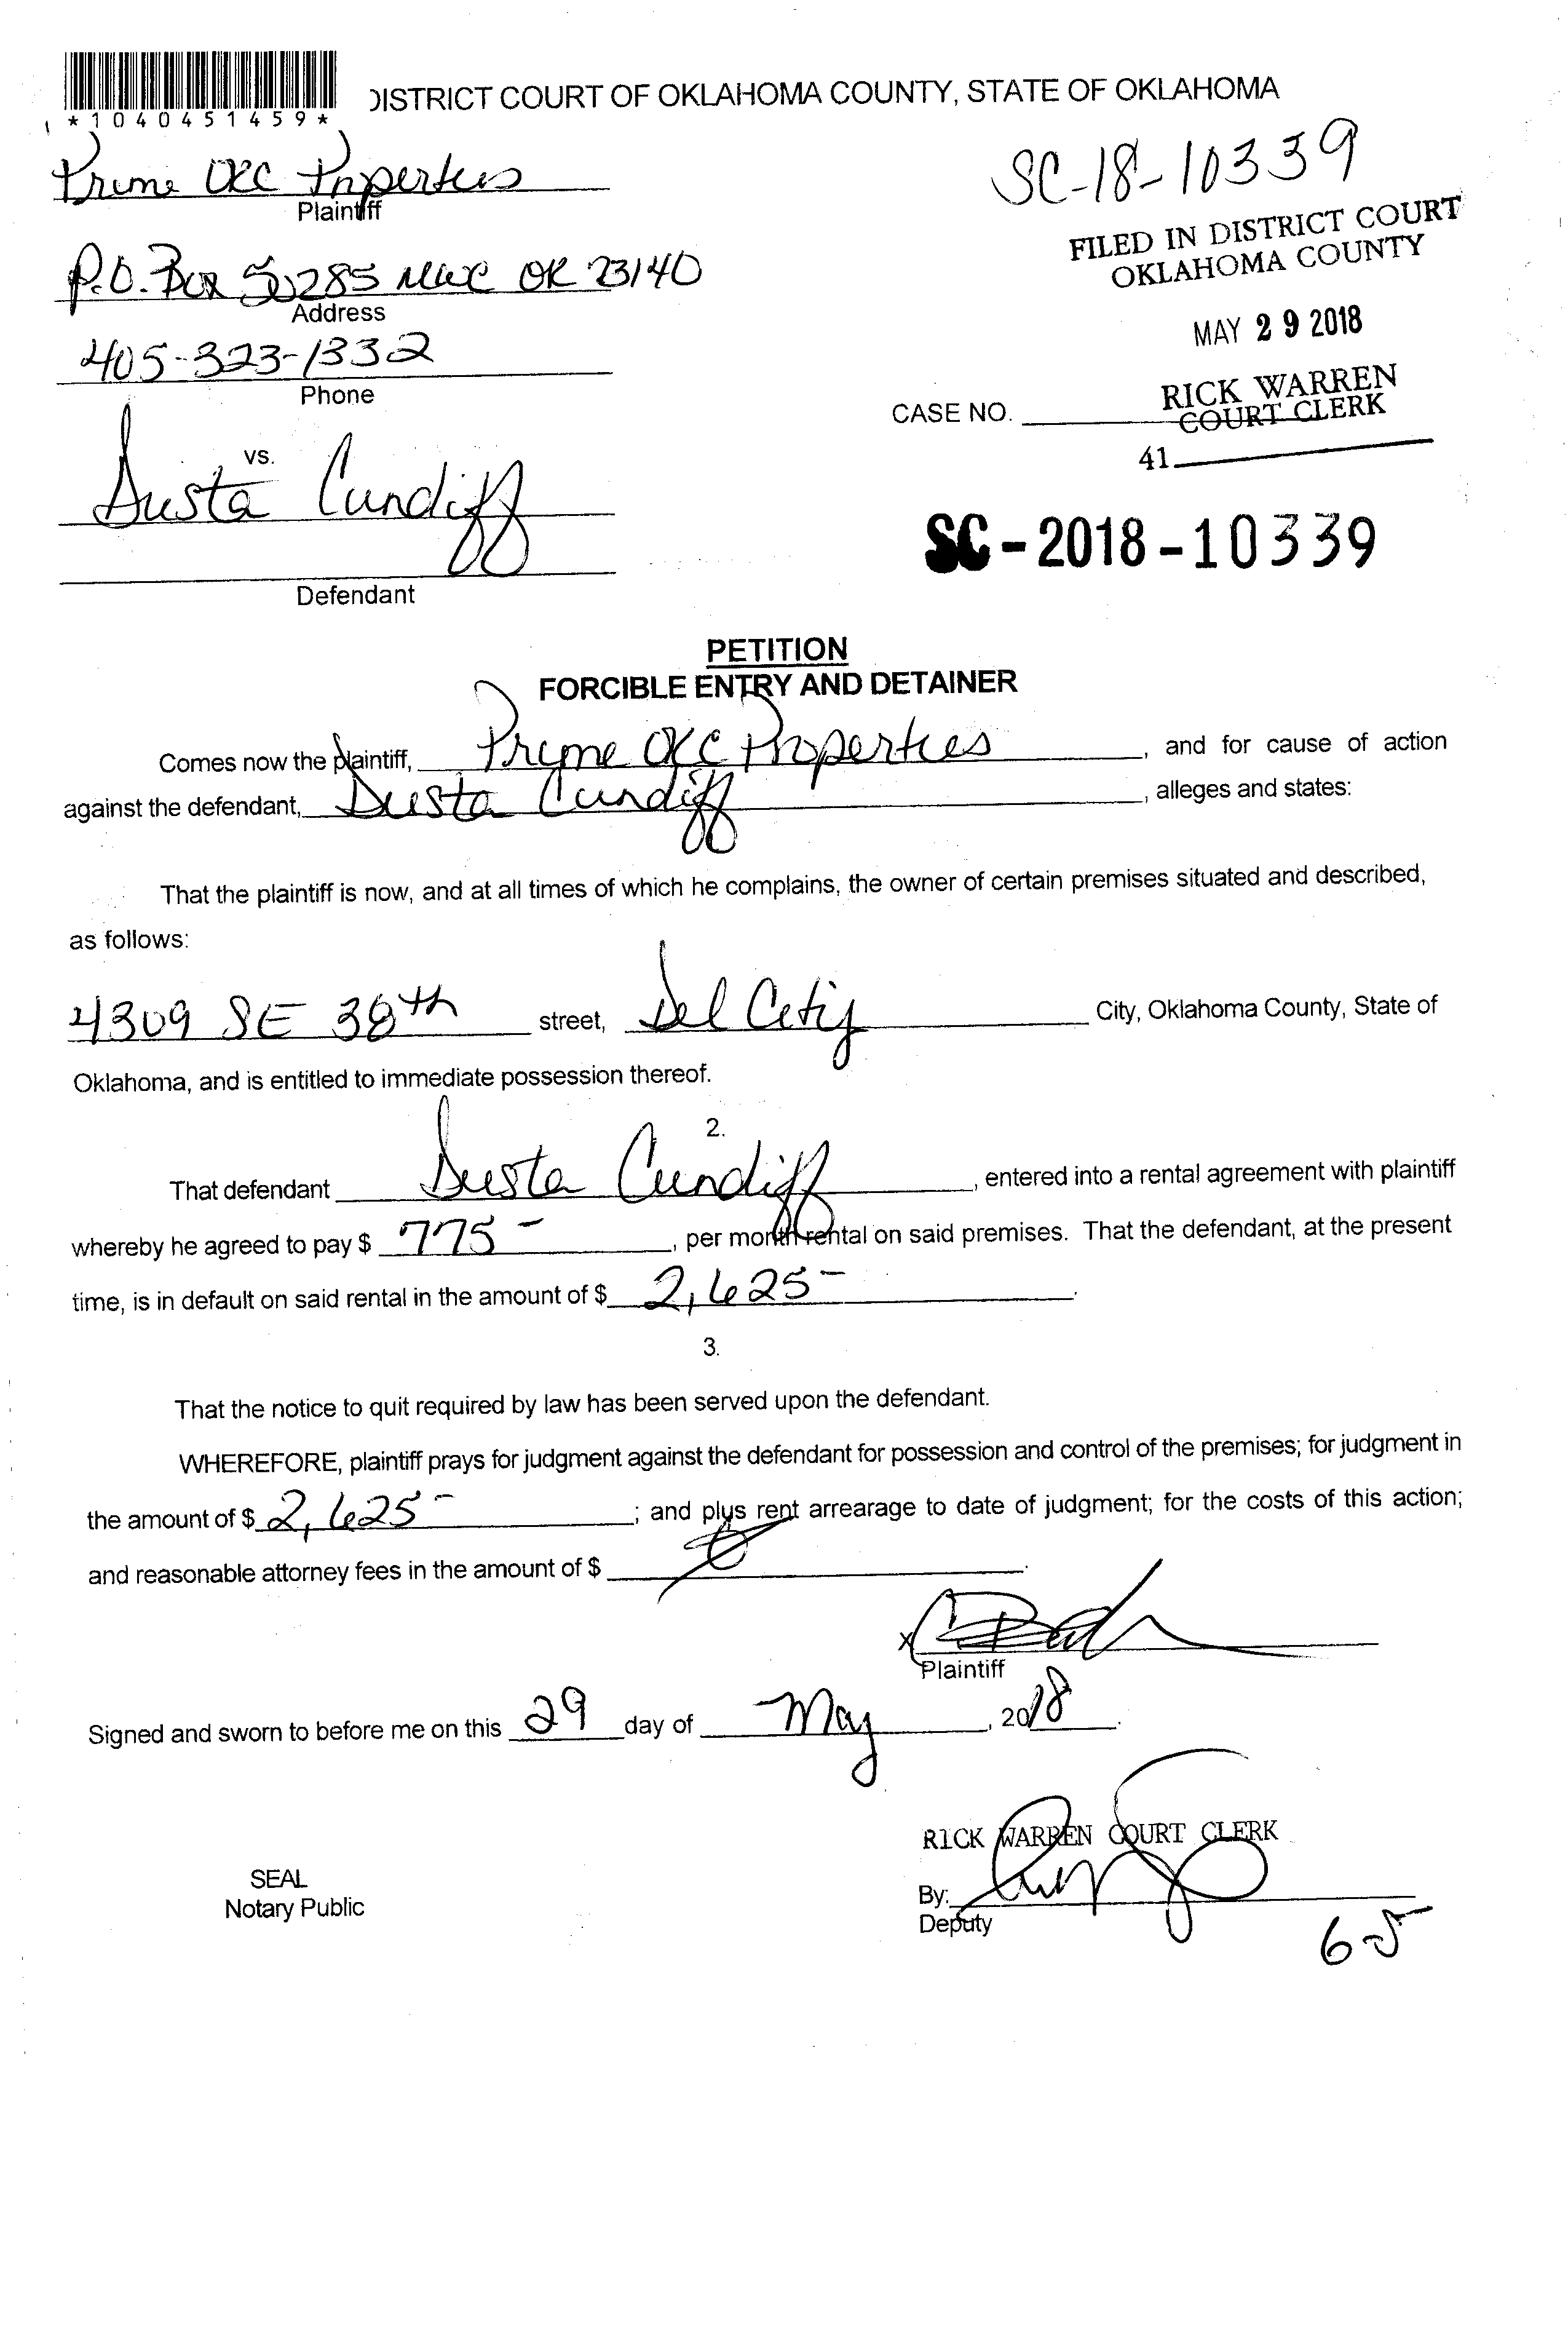 *1040451459*
DISTRICT COURT OF OKLAHOMA COUNTY, STATE OF OKLAHOMA
Prime OKC Properties
Plaintiff
SC-18-10339
FILED IN DISTRICT COURT
OKLAHOMA COUNTY
P.O. Box 50285 MWC OK 73140
Address
MAY 29 2018
405-323-1332
Phone
RICK WARREN
COURT CLERK
CASE NO.
41
vs.
Dusta Cundiff
Defendant
SC-2018-10339
PETITION
FORCIBLE ENTRY AND DETAINER
Comes now the plaintiff, Prime OKC Properties, and for cause of action
against the defendant, Dusta Cundiff, alleges and states:
That the plaintiff is now, and at all times of which he complains, the owner of certain premises situated and described,
as follows:
4309 SE 38th street, Del City City, Oklahoma County, State of
Oklahoma, and is entitled to immediate possession thereof.
2.
That defendant Dusta Cundiff, entered into a rental agreement with plaintiff
whereby he agreed to pay $ 775-, per month rental on said premises. That the defendant, at the present
time, is in default on said rental in the amount of $ 2,625-.
3.
That the notice to quit required by law has been served upon the defendant.
WHEREFORE, plaintiff prays for judgment against the defendant for possession and control of the premises; for judgment in
the amount of $ 2,625-; and plus rent arrearage to date of judgment; for the costs of this action;
and reasonable attorney fees in the amount of $ .
x
Plaintiff
Signed and sworn to before me on this 29 day of May, 2018.
RICK WARREN COURT CLERK
SEAL
Notary Public
By:
Deputy
6-5